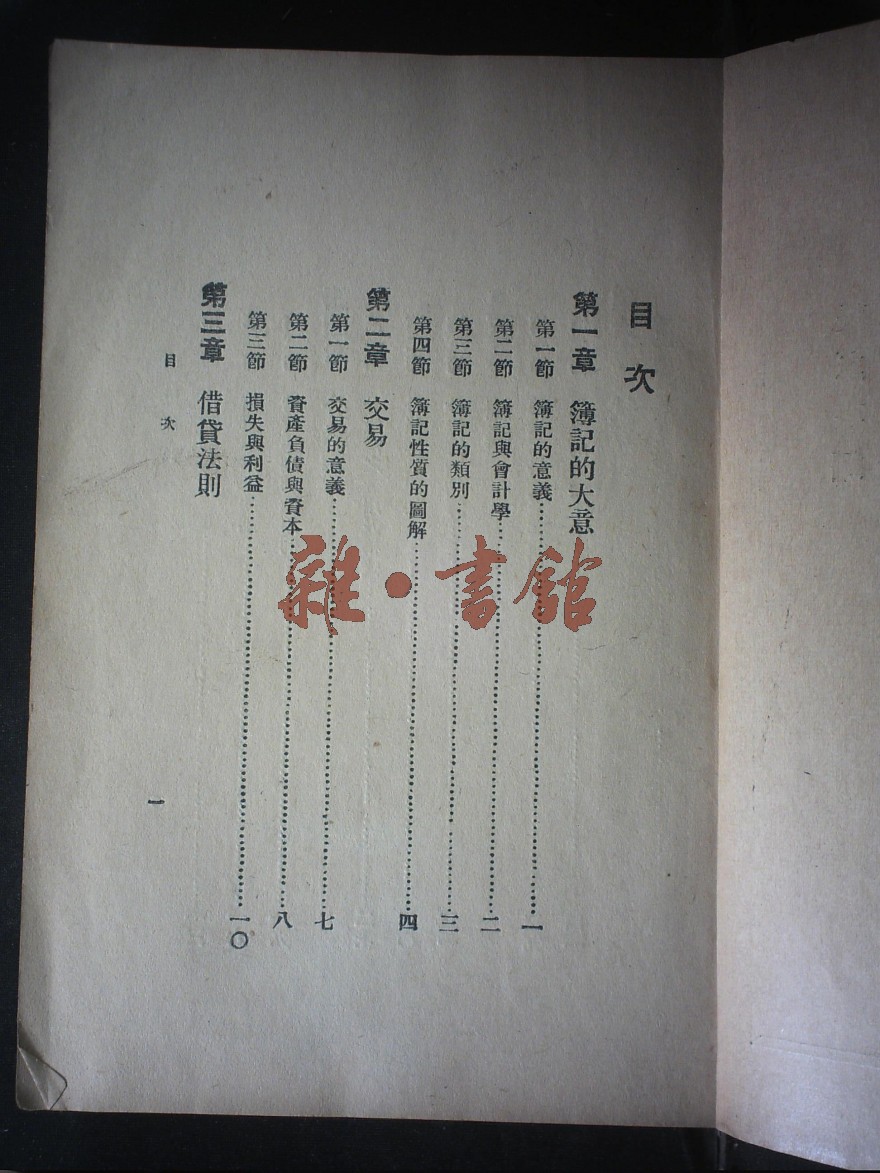 目次
第一章 簿記的大意
第一節 簿記的意義……一
第二節 簿記與會計學……二
第三節 簿記的類別……三
第四節 簿記性質的圖解……四
第二章 交易
第一節 交易的意義……七
第二節 資產負債與資本……八
第三節 損失與利益……一〇
第三章 借貸法則
目次
一
雜·書館